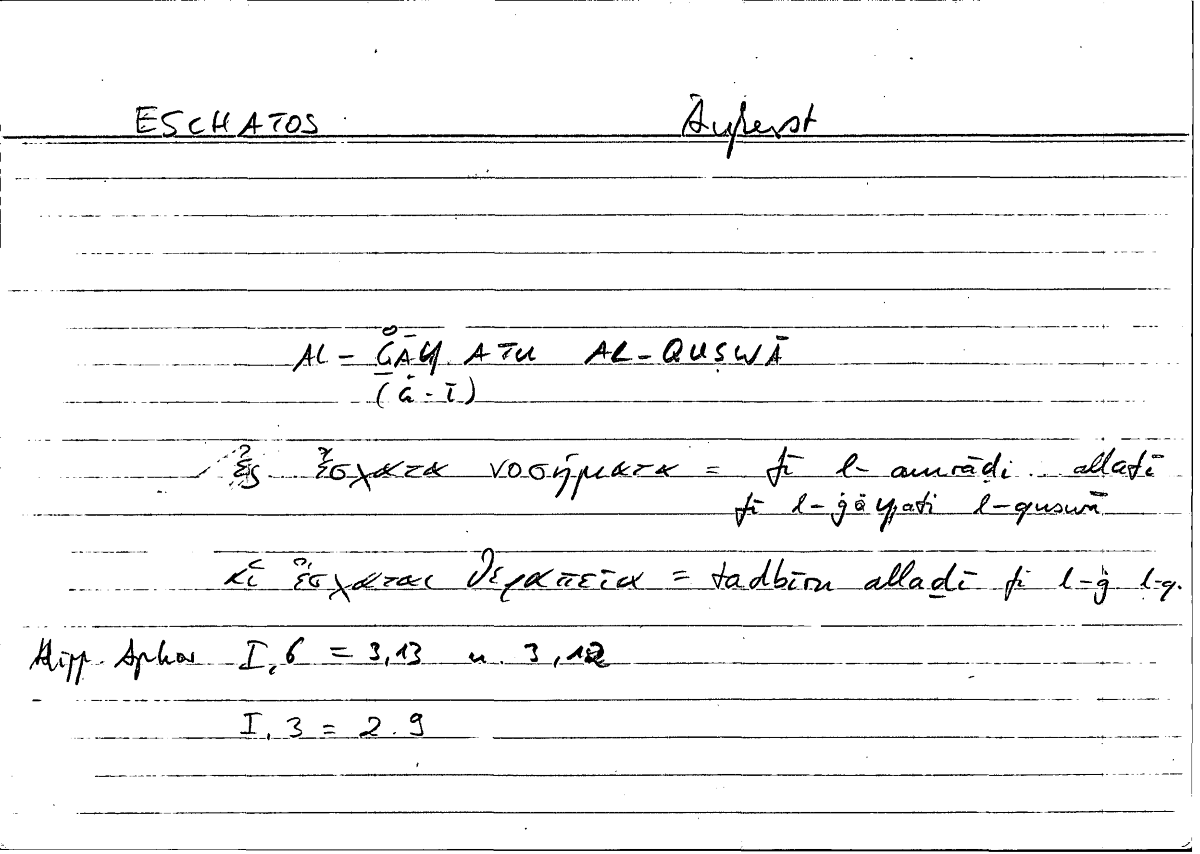 ESCHATOS Äußerst
AL-ĠĀYATU AL-QUṢWĀ
(ġ-ī)
ἐς ἔσχατα νοσήματα = fī l-amrāḍi .. allatī
fī l-ġāyati l-quswā
αἱ ἔσχαται θεραπεῖα = tadbīru alladī fī l-ġ l-q.
Hipp. Aphor I,6 = 3,13 u. 3,12
I,3 = 2.9